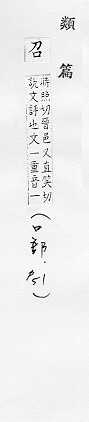 類篇
召
時照切晉邑又直笑切
說文評也文一重音一
(口部・